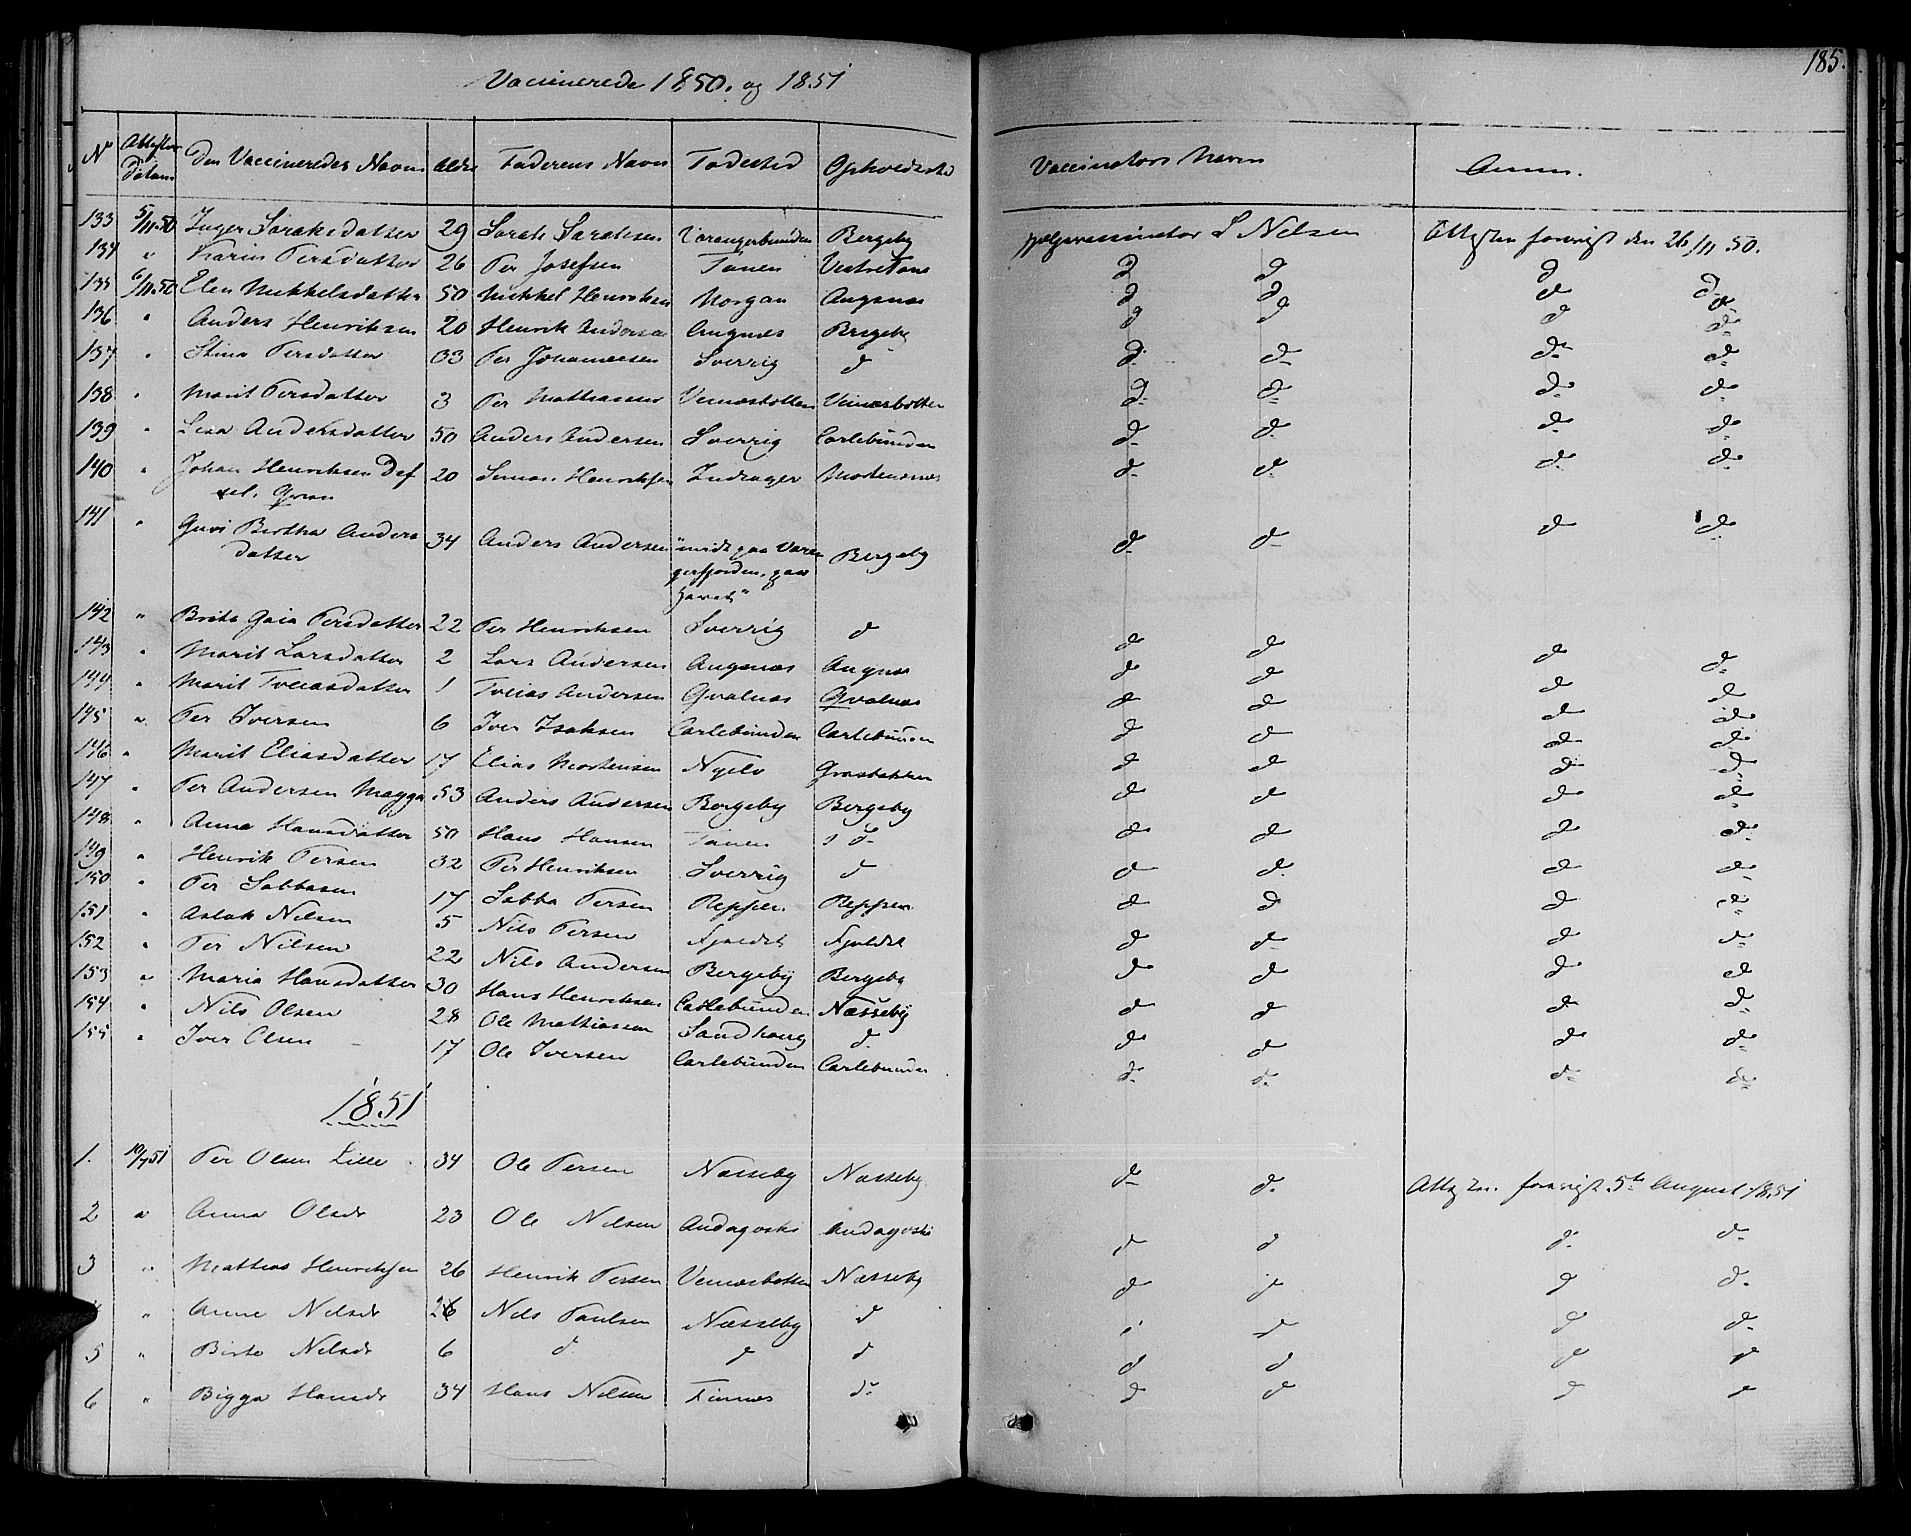 185.
Vaccinerede 1850. og 1851
No Attestens Datum Den Vaccineredes Navn Alder Faderens Navn Fødested Opholdssted Vaccinators Navn Anm.
133 5/11.50 Inger Sarahsdatter 29 Sarah Sarahsen Varangerbunden Bergeby Hjælpevaccinator S Nilsen Attesten forevist den 26/11 50.
134 " Karin Persdatter 26 Per Josefsen Tanen Vestre Tana d d d d
135 6/11.50 Elen Mikkelsdatter 50 Mikkel Henriksen Norgan Angsnæs d d d d
136 " Anders Henriksen 20 Henrik Andersen Angnæs Bergeby d d d d
137 " Stina Persdatter 33 Per Johannesen Sverrig d d d d d
138 " Marit Persdatter 3 Per Mathiassen Vesnæsbotten Vesnæsbotten d d d d
139 " Lisa Andersdatter 50 Anders Andersen Sverrig Carlebunden d d d d
140 " Johan Henriksen 20 Simon Henriksen Indiager Mortensnæs d d d d
141 " Guri Birtha Anders 34 Anders Andersen "midt paa Varan Bergeby d d d d
datter gerfjorden, paa
Havet"
142 " Brita Gaia Persdatter 22 Per Henriksen Sverrig d d d d d
143 " Marit Larsdatter 2 Lars Andersen Angsnæs Angnæs d d d d
144 " Marit Toviasdatter 1 Tovias Andersen Qvalnæs Qvalnæs d d d d
145 " Per Iversen 6 Iver Isaksen Carlebunden Carlebunden d d d d
146 " Marit Eliasdatter 17 Elias Mortensen Nyelv Græsbakken d d d d
147 " Per Andersen Magga 53 Anders Andersen Bergeby Bergeby d d d d
148 " Anna Hansdatter 50 Hans Hansen Tanen d d d d d
149 " Henrik Persen 32 Per Henriksen Sverrig d d d d d
150 " Per Sabbasen 17 Sabba Persen Reppen Reppen d d d d
151 " Aslak Nilsen 5 Nils Persen Fjeldet Fjeldet d d d d
152 " Per Nilsen 22 Nils Andersen Bergeby Bergeby d d d d
153 " Maria Hansdatter 30 Hans Henriksen Carlebunden Næsseby d d d d
154 " Nils Olsen 28 Ole Mathiassen Sandhaug d d d d d
155 " Iver Olsen 17 Ole Iversen Carlebunden Carlebunden d d d d
1851
1. 10/7 51 Per Olsen Lille 34 Ole Persen Næsseby Næsseby d d Attesten forevist 5te August 1851
2 " Anna Olsdr 23 Ole Nilsen Andagoski Andagoski d d d d
3 " Mathias Henriksen 26 Henrik Persen Vesnæsbotten Næsseby d d d d
" Anne Nilsdr 26 Nils Paulsen Næsseby d d d d d
5 " Birte Nilsdr 6 d d d d d d d
6 " Bigga Hansdr 34 Hans Nilsen Finnæs d d d d d